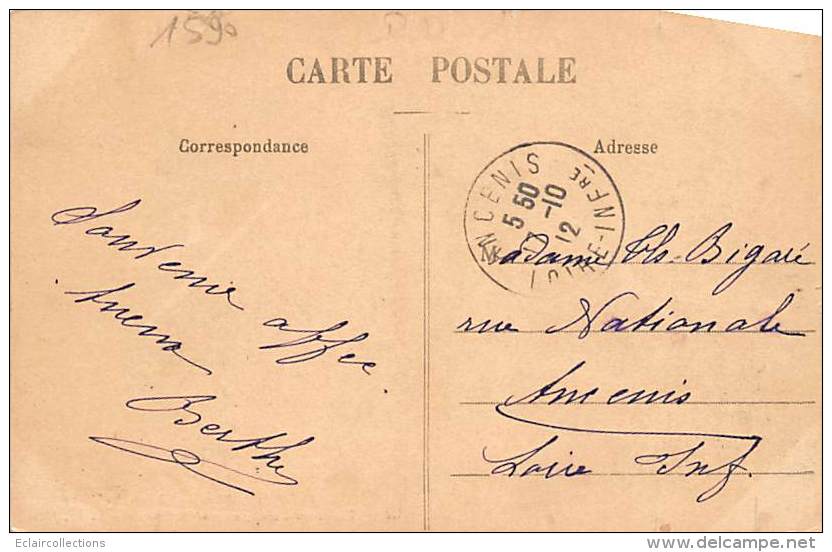 1590
CARTE POSTALE
Correspondance
Adresse
ANCENIS
5 50
7 -10
12
LOIRE-INFRE
Souvenir affec.
Berthe
Madame Vls. Bigaré
rue Nationale
Ancenis
Loire Inf.
Eclaircollections
www.delcampe.net